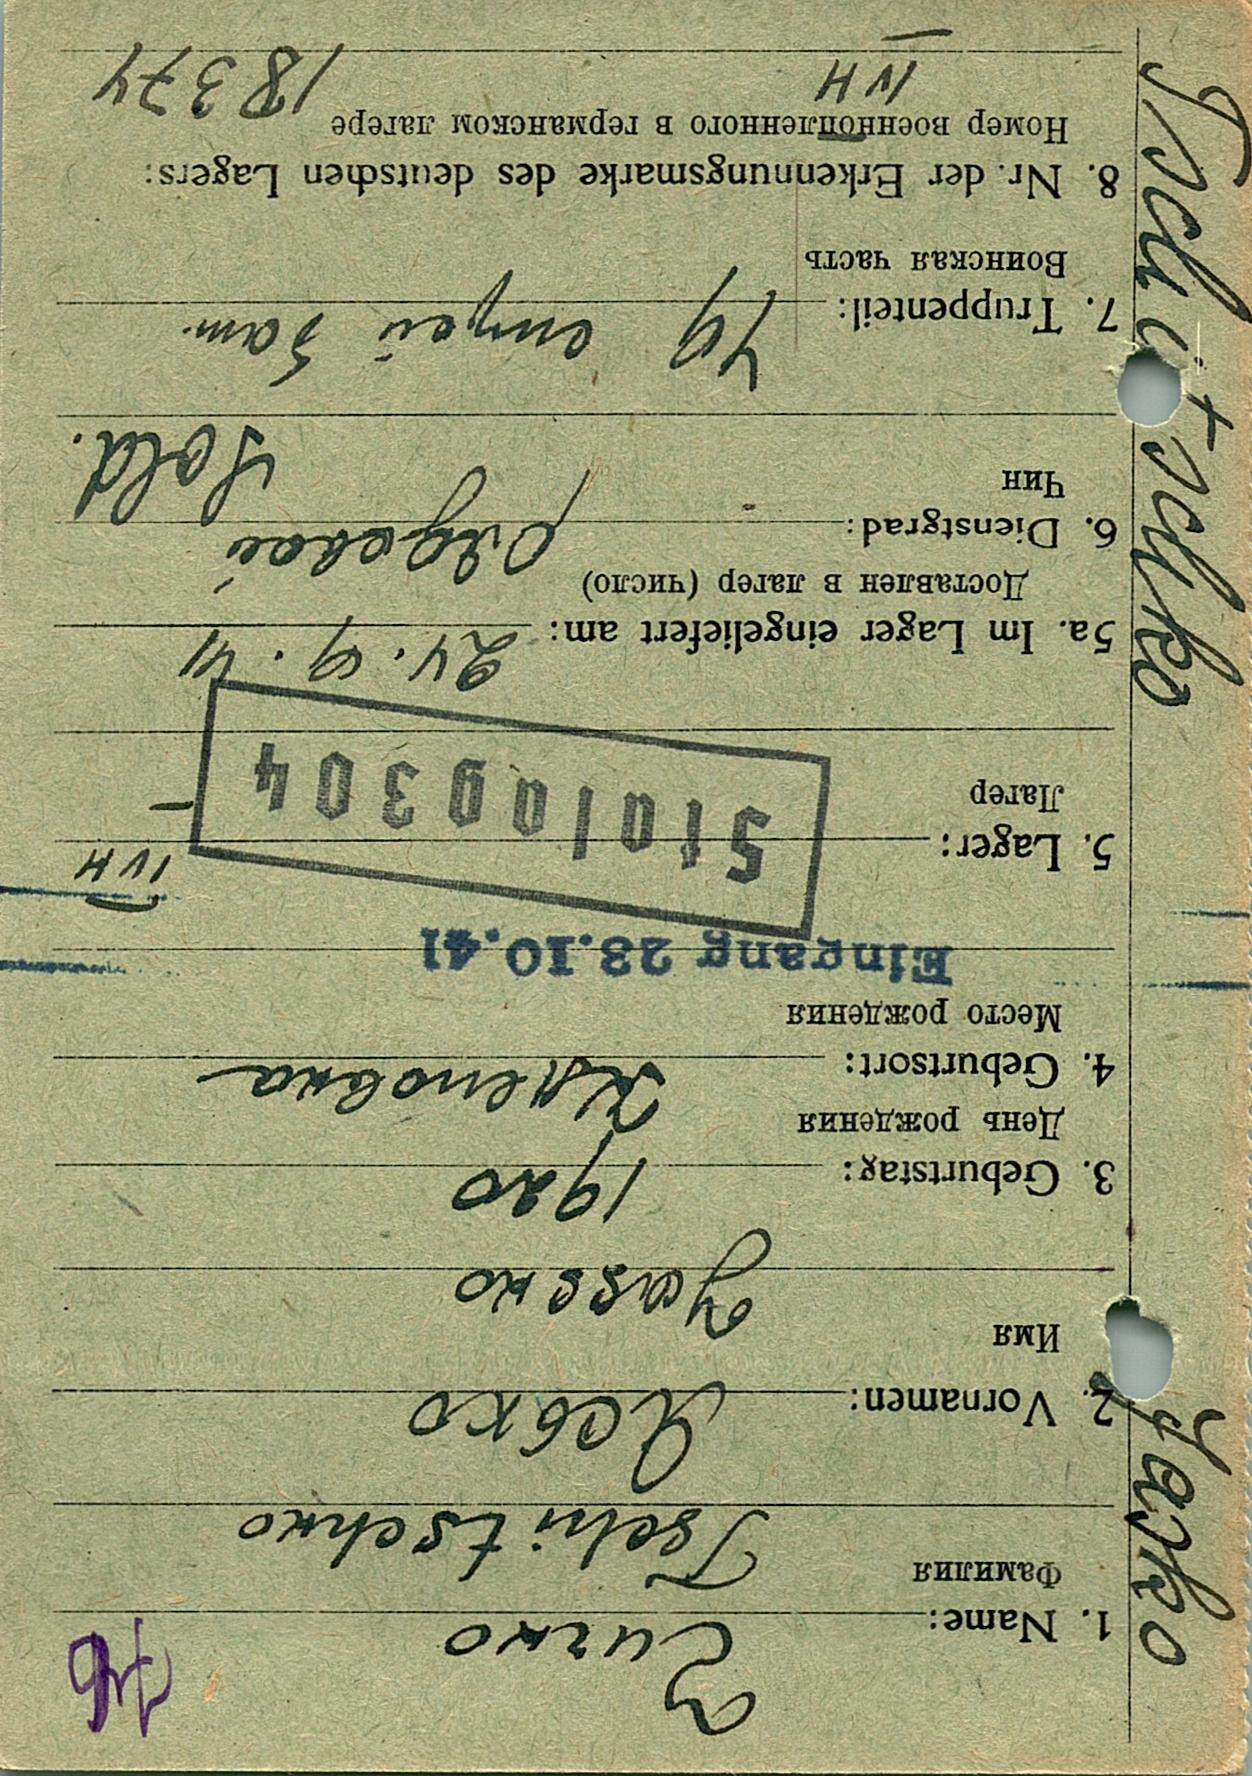 1. Name: Чичко
Фамилия
Tschitschko
2. Vornamen: Ясько
Имя
Jassko
3. Geburtstag: 1920
День рождения
4. Geburtsort:
Место рождения
Eingang 23.10.41
IVH
5. Lager: Stalag 304
Лагер
5a. Im Lager eingeliefert am: 24.9.41
Доставлен в лагер (число)
6. Dienstgrad: рядовой
Чин
Sold.
7. Truppenteil: 49
Воинская часть
8. Nr. der Erkennungsmarke des deutschen Lagers:
Номер военнопленного в германском лагере
IVH 18374
Tschitschko